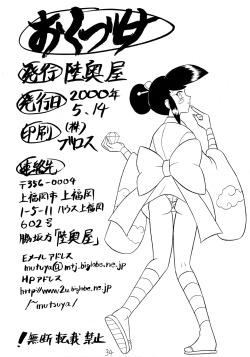 おくづけ
発行 陸奥屋
発行日 2000年
5.14
印刷 (株)
プリズス
連絡先
〒356-0004
上福岡市上福岡
1-5-11 ハウス上福岡
602号
勝坂方「陸奥屋」
Eメールアドレス
mutuya@mtj.biglobe.ne.jp
HPアドレス
http://www2u.biglobe.ne.jp
/~mutsuya/
!無断転載禁止
34